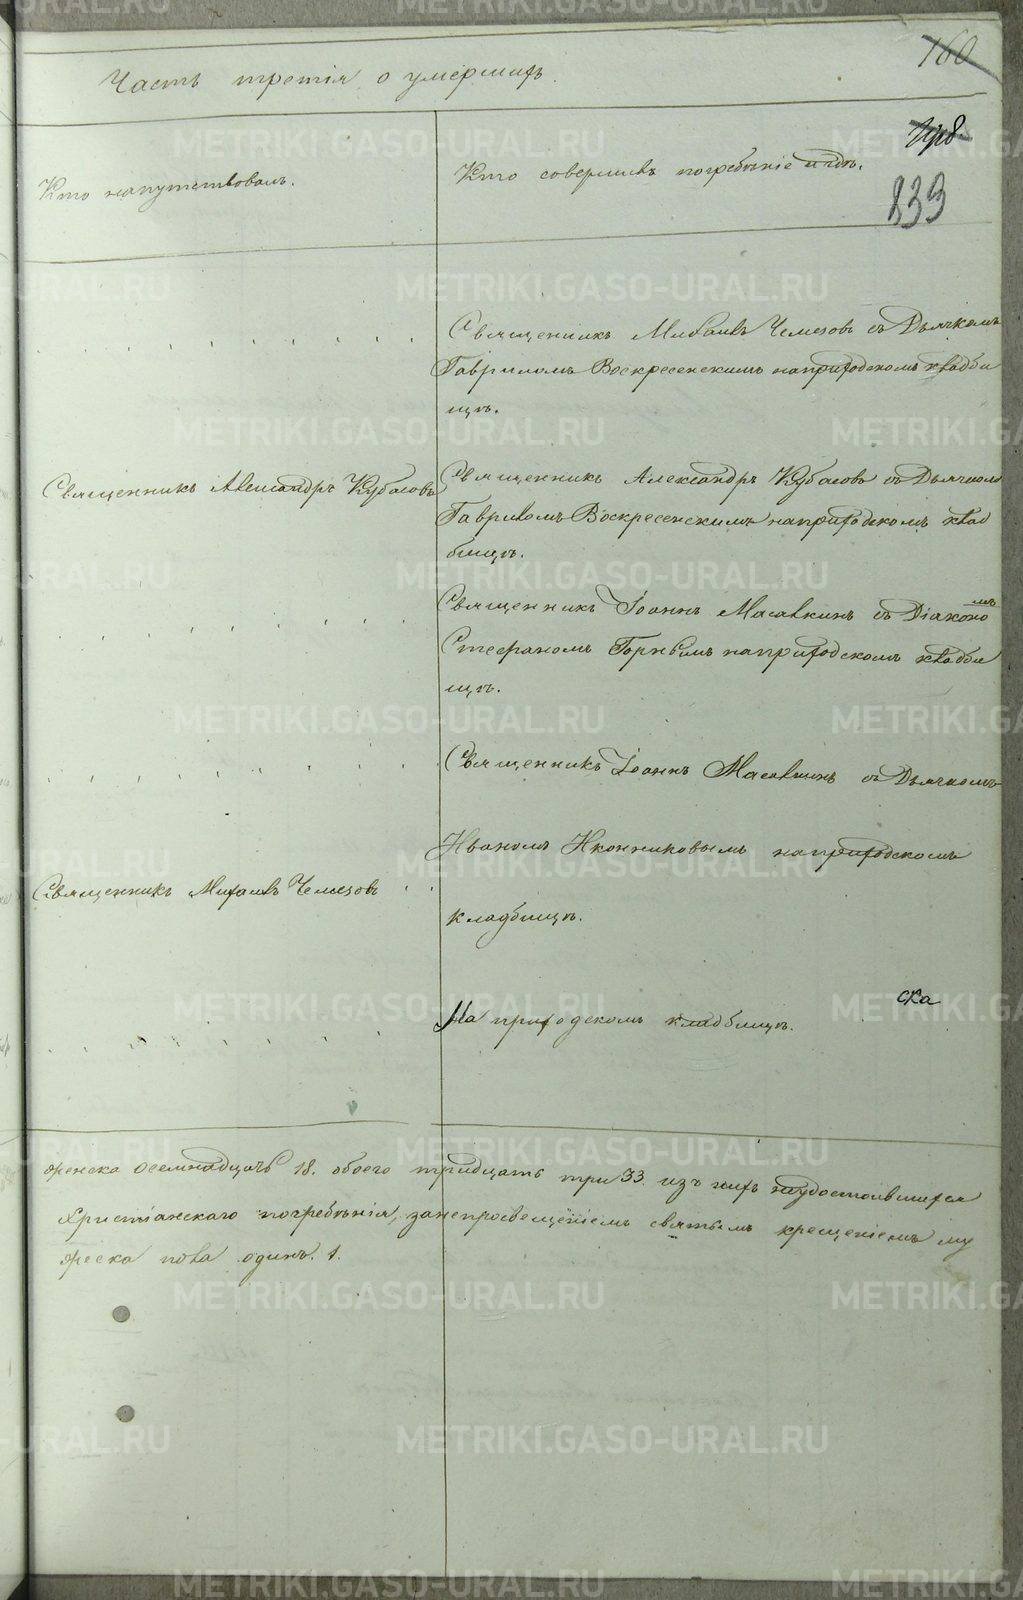 160
Часть третія о умершихъ.
Кто напутствовалъ.
Кто совершилъ погребеніе и гдѣ.
839
Священникъ Михаилъ Чемезовъ съ Дьячкомъ
Гавриломъ Воскресенскимъ на приходскомъ кладби
щѣ.
Священникъ Александръ Кубасовъ
Священникъ Александръ Кубасовъ съ Дьячкомъ
Гавриломъ Воскресенскимъ на приходскомъ клад
бищѣ.
Священникъ Іоаннъ Масалкинъ съ Діакономъ
Стефаномъ Горнымъ на приходскомъ кладби
щѣ.
Священникъ Іоаннъ Масалкинъ съ Дьячкомъ
Иваномъ Иконниковымъ на приходскомъ
Священникъ Михаилъ Чемезовъ
кладбищѣ.
ска
На приходскомъ кладбищѣ.
женска осемнадцать 18. обоего тридцать три 33. изъ нихъ неудостоившихся
Христіанскаго погребенія, занепросвещеніемъ святымъ крещеніемъ му
жеска пола одинъ. 1.
METRIKI.GASO-URAL.RU